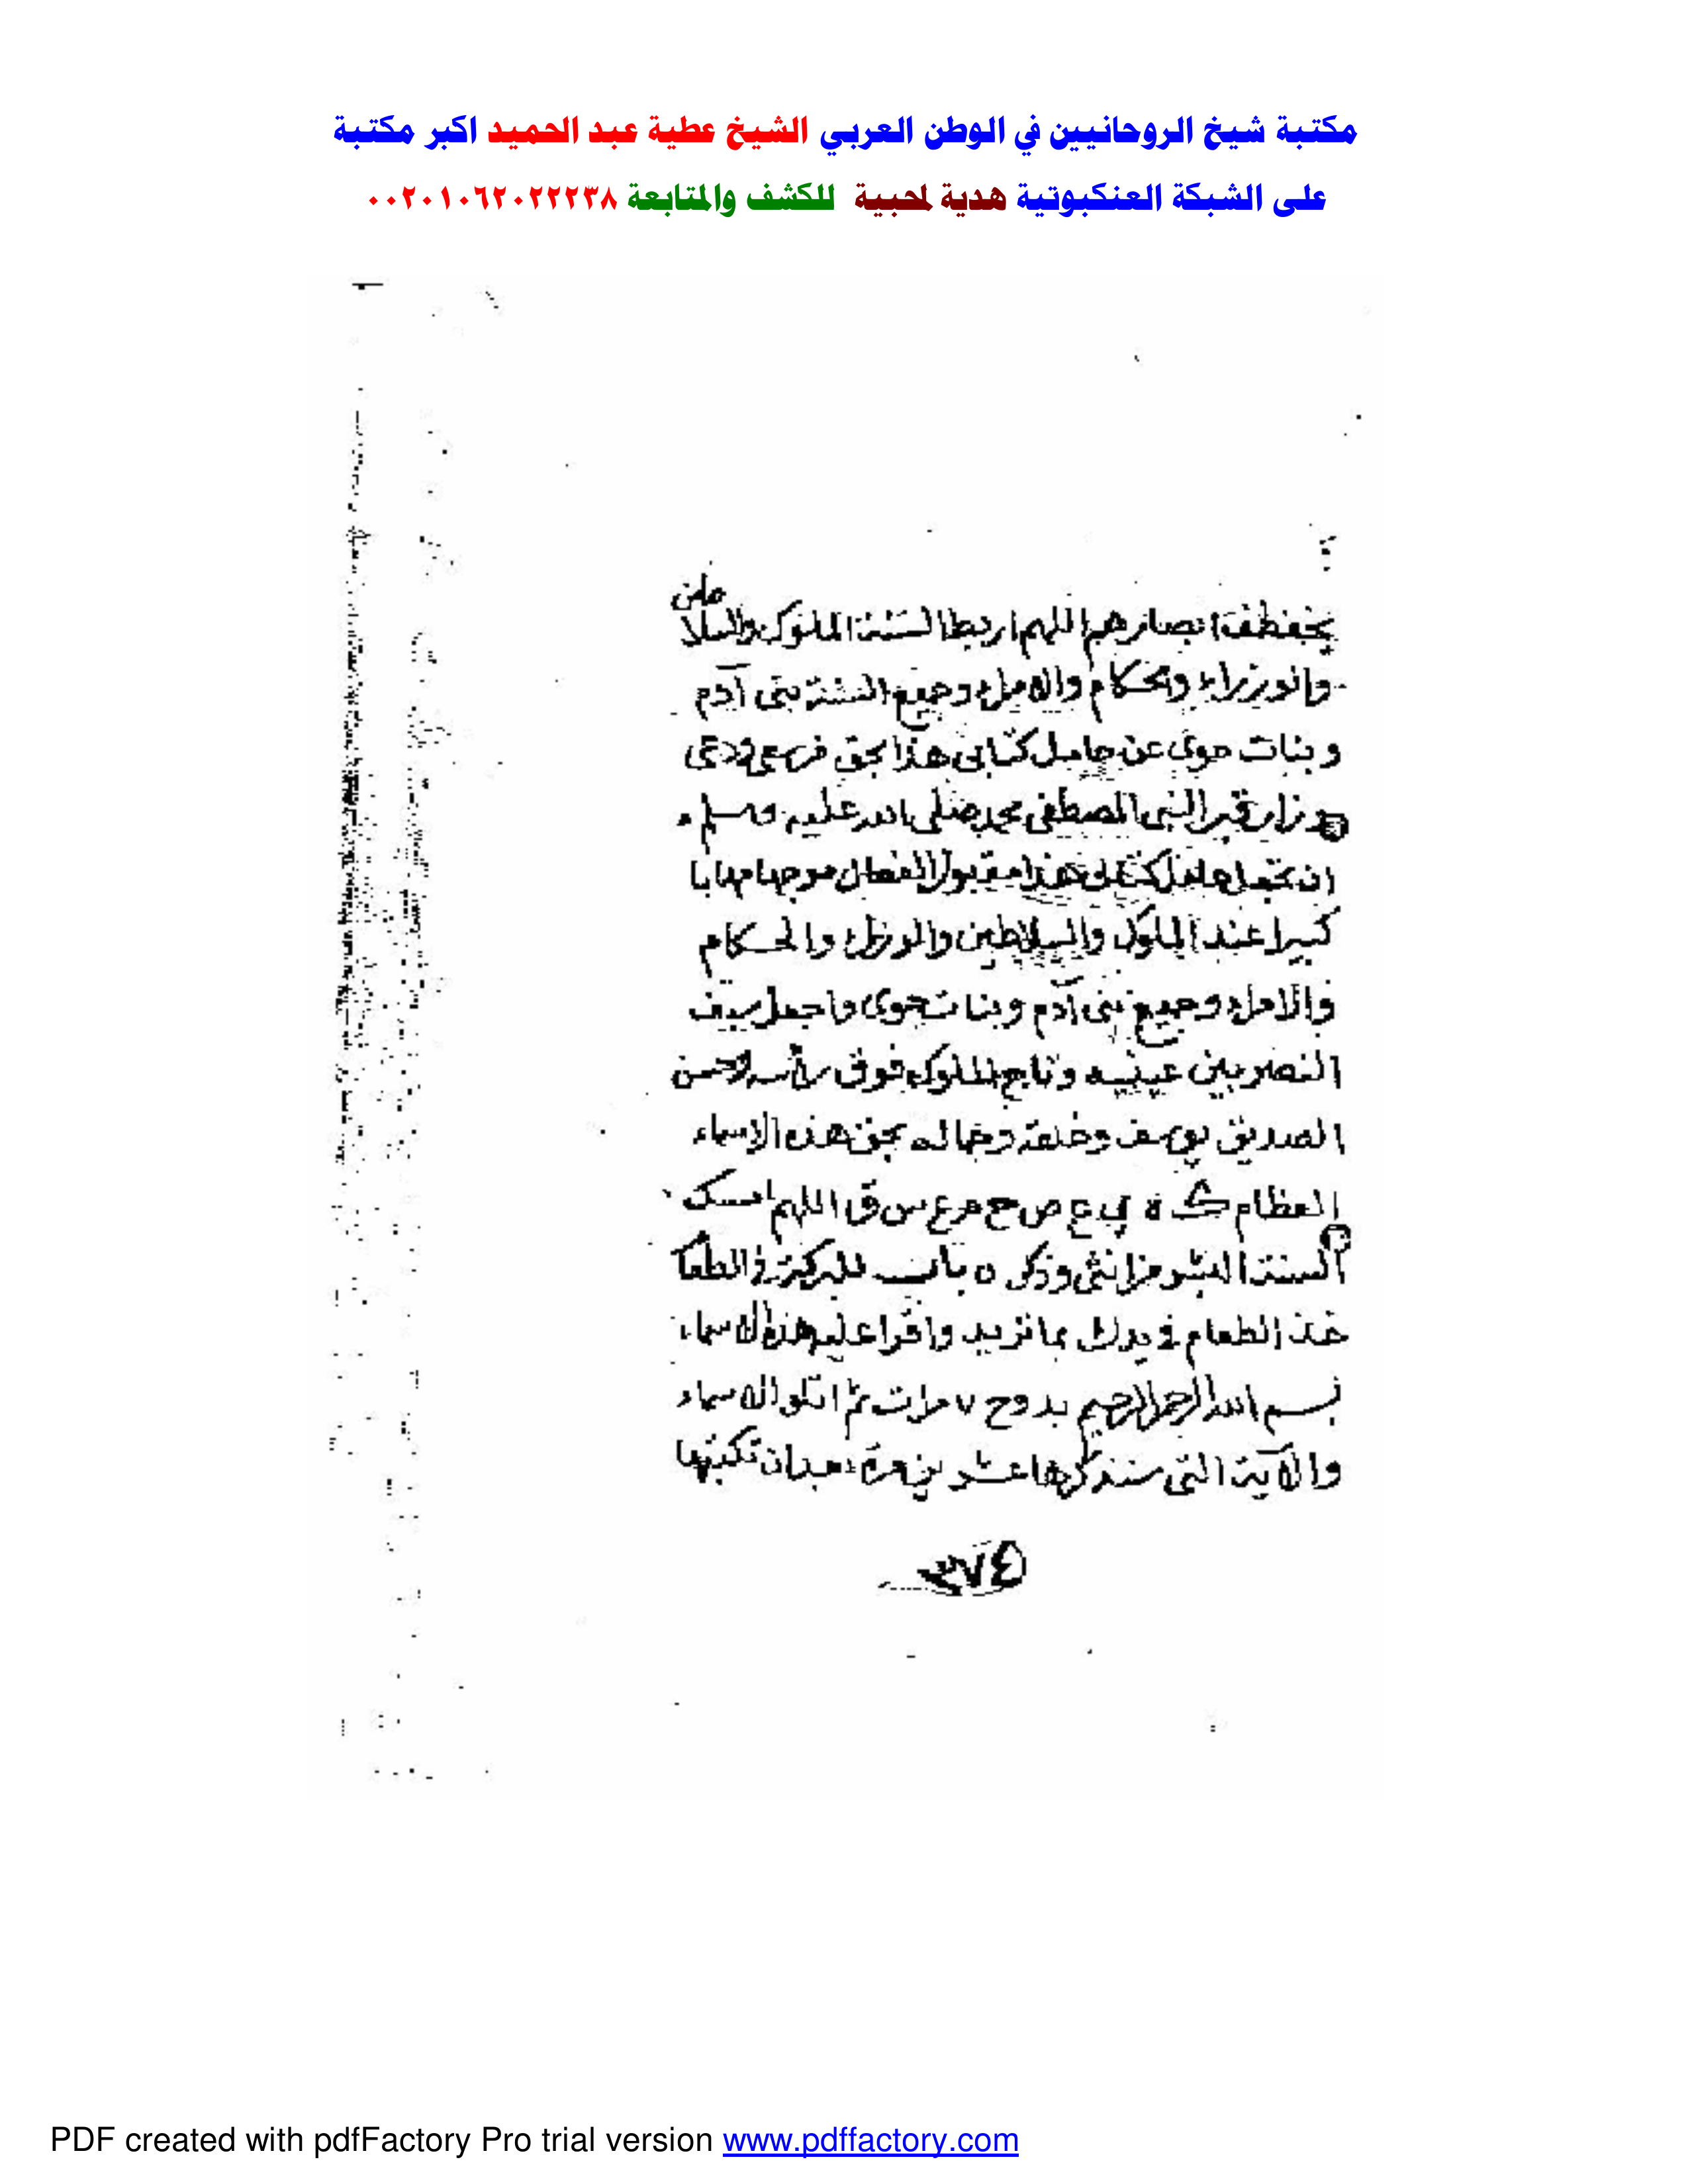 مكتبة شيخ الروحانيين في الوطن العربي الشيخ عطية عبد الحميد اكبر مكتبة
على الشبكة العنكبوتية هدية لمحبية للكشف والمتابعة ٠٠٢٠١٠٦٢٠٢٢٢٣٨
ابصارهم اللهم اربط السنة الملوك والسلاطين
والوزراء والحكام والامراء وجميع السنة بنى آدم
وبنات حوى عن حامل كتابى هذا بحق من
وزار قبر النبى المصطفى محمد صلى الله عليه وسلم
ان تجعل حامل كتابى هذا مقبول مهابا
كبيرا عند الملوك والسلاطين والوزراء والحكام
والامراء وجميع بنى آدم وبنات حوى واجعل سيف
النصر بين عينيه وتاج الملوك فوق رأسه
الصديق يوسف وخلعة وجماله بحق هذه الاسماء
العظام ك ه ي ع ص ح م ع س ق اللهم امسك
السنة البشر من انثى وذكر ٥ باب للبركة في الطعام
خذ الطعام في يدك بما تريد واقرا عليه هذه الاسماء
بسم الله الرحمن الرحيم بدوح ٧ مرات ثم اتلو الاسماء
والآية التى سنذكرها عشرين مرة بعد ان تكتبها
٣٧٤
PDF created with pdfFactory Pro trial version www.pdffactory.com